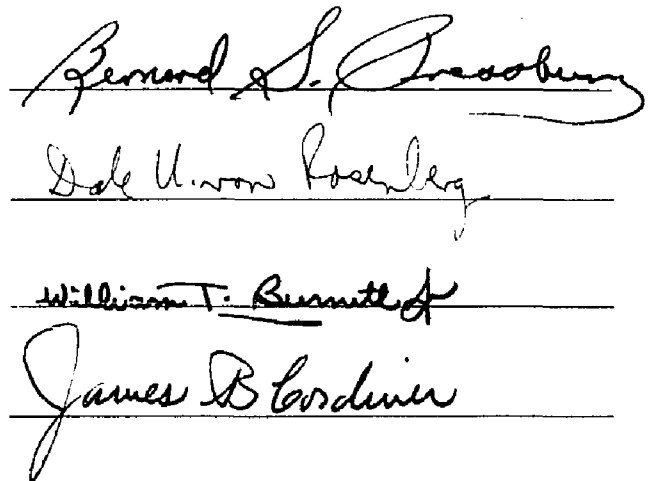 Bernard S. Pressburg
Dale U. von Rosenberg
William T. Burnett Jr
James B Cordiner